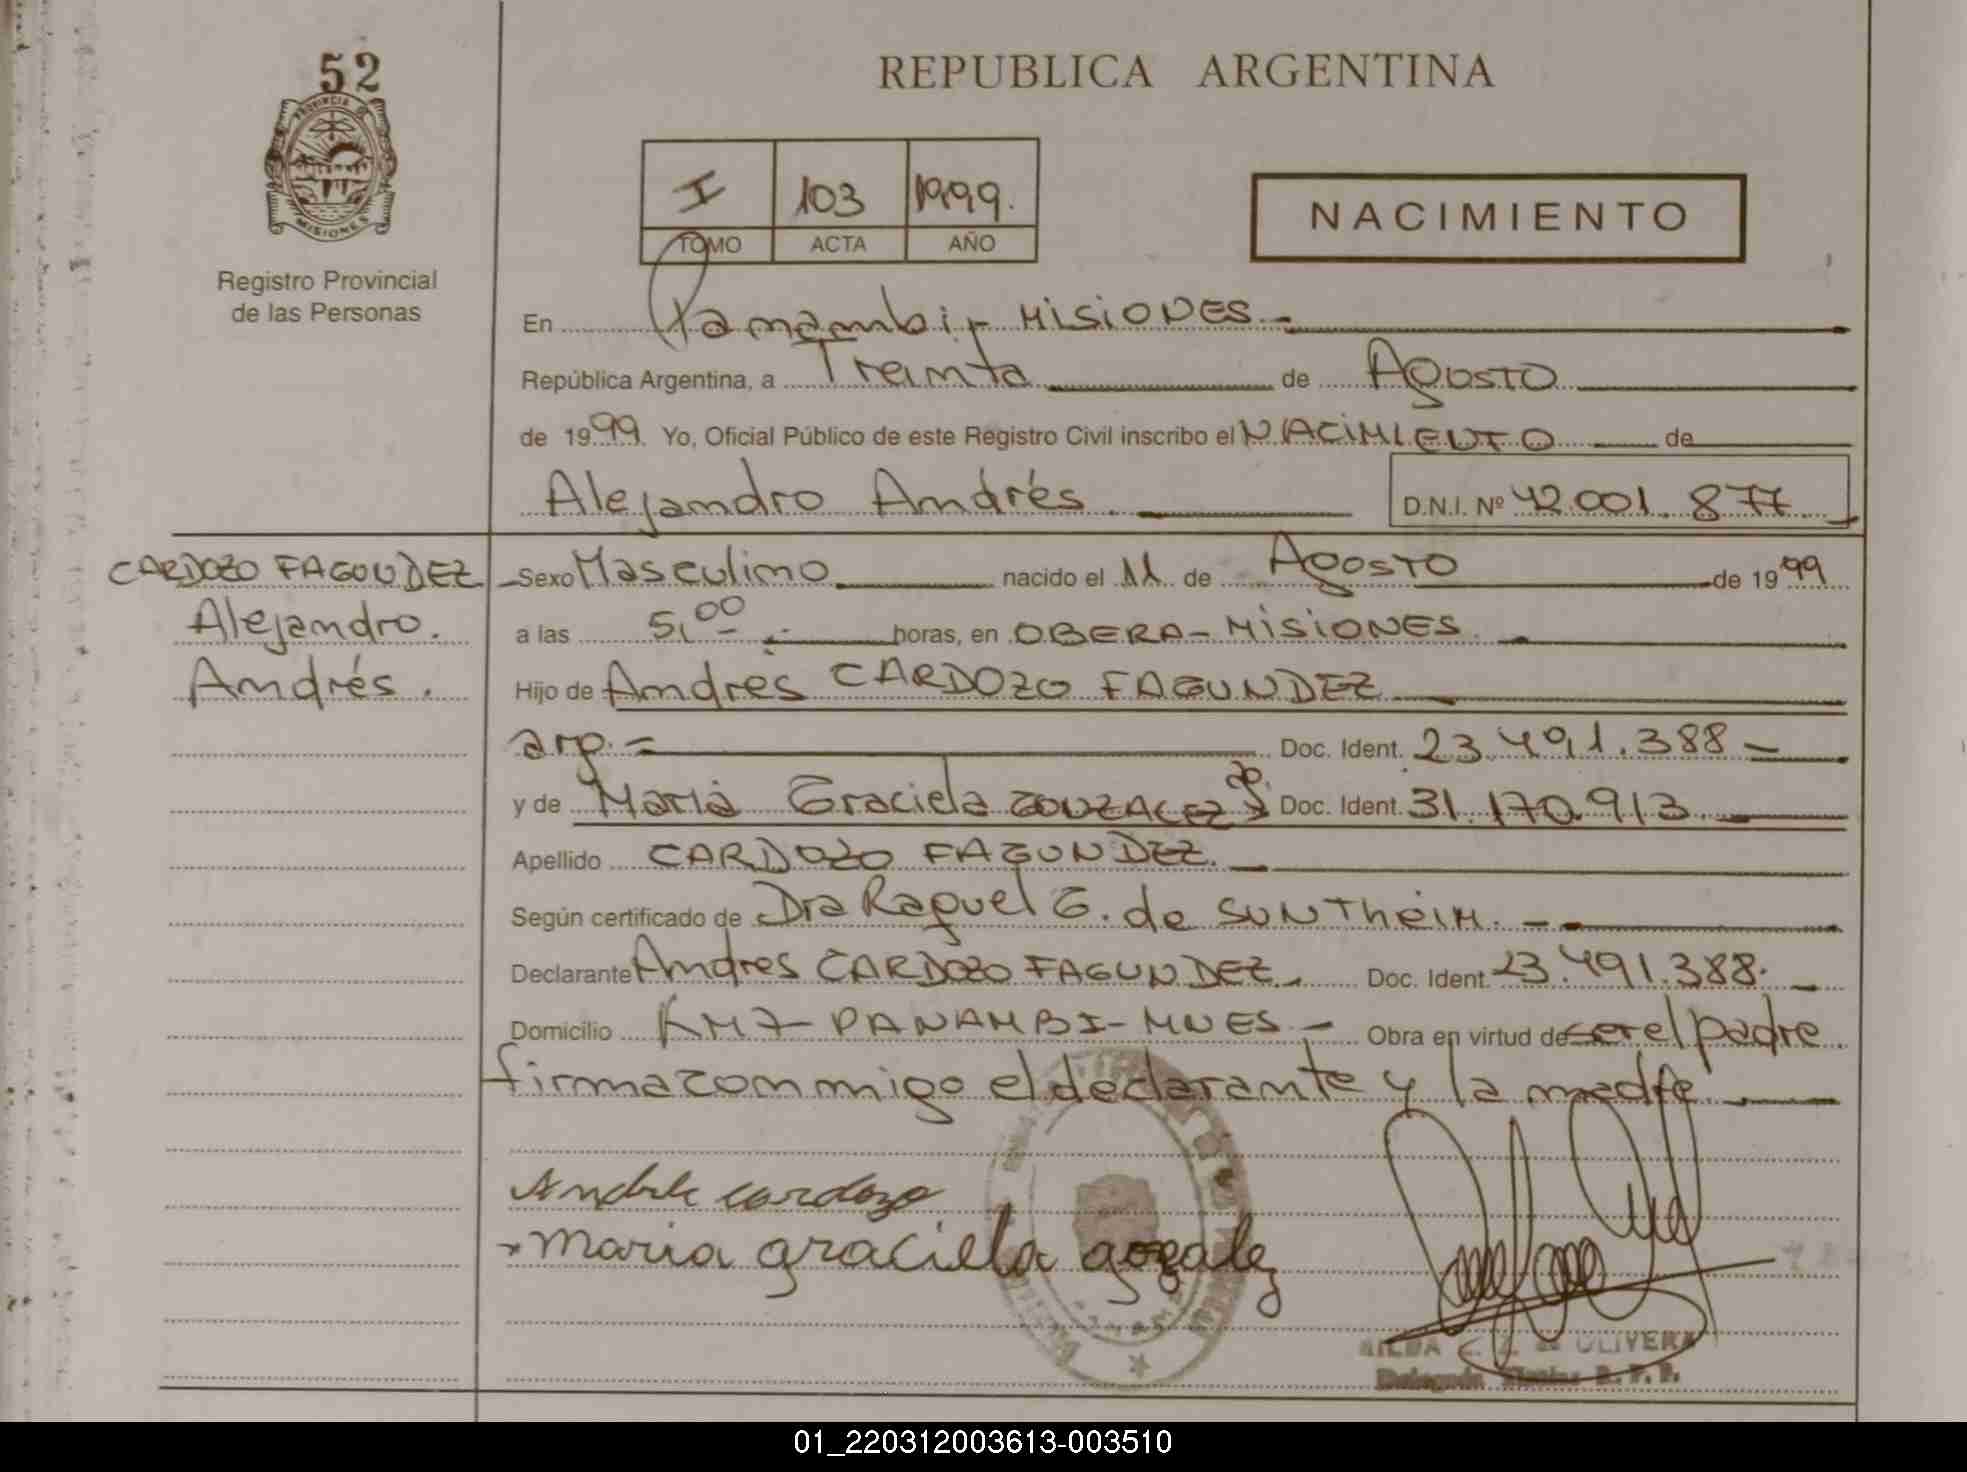 52
PROVINCIA DE
MISIONES
Registro Provincial
de las Personas
REPUBLICA ARGENTINA
I 103 1999.
TOMO ACTA AÑO
NACIMIENTO
En Panambi - MISIONES
República Argentina, a Treinta de Agosto
de 1999. Yo, Oficial Público de este Registro Civil inscribo el NACIMIENTO de
Alejandro Andrés
D.N.I. Nº 42.001.877
CARDOZO FAGUNDEZ
Alejandro.
Andrés.
Sexo Masculino nacido el 11 de Agosto de 1999
a las 5,00 horas, en OBERA - MISIONES
Hijo de Andrés CARDOZO FAGUNDEZ
arg. Doc. Ident. 23.491.388
y de María Graciela GONZALEZ Doc. Ident. 31.170.913
Apellido CARDOZO FAGUNDEZ.
Según certificado de Dra Raquel G. de SUNTHEIM.
Declarante Andres CARDOZO FAGUNDEZ Doc. Ident. 23.491.388.
Domicilio KM 7 - PANAMBI - MNES - Obra en virtud de ser el padre
firma conmigo el declarante y la madre
cardozo
maria graciela gozalez
OLIVERA
R. P. P.
01_220312003613-003510